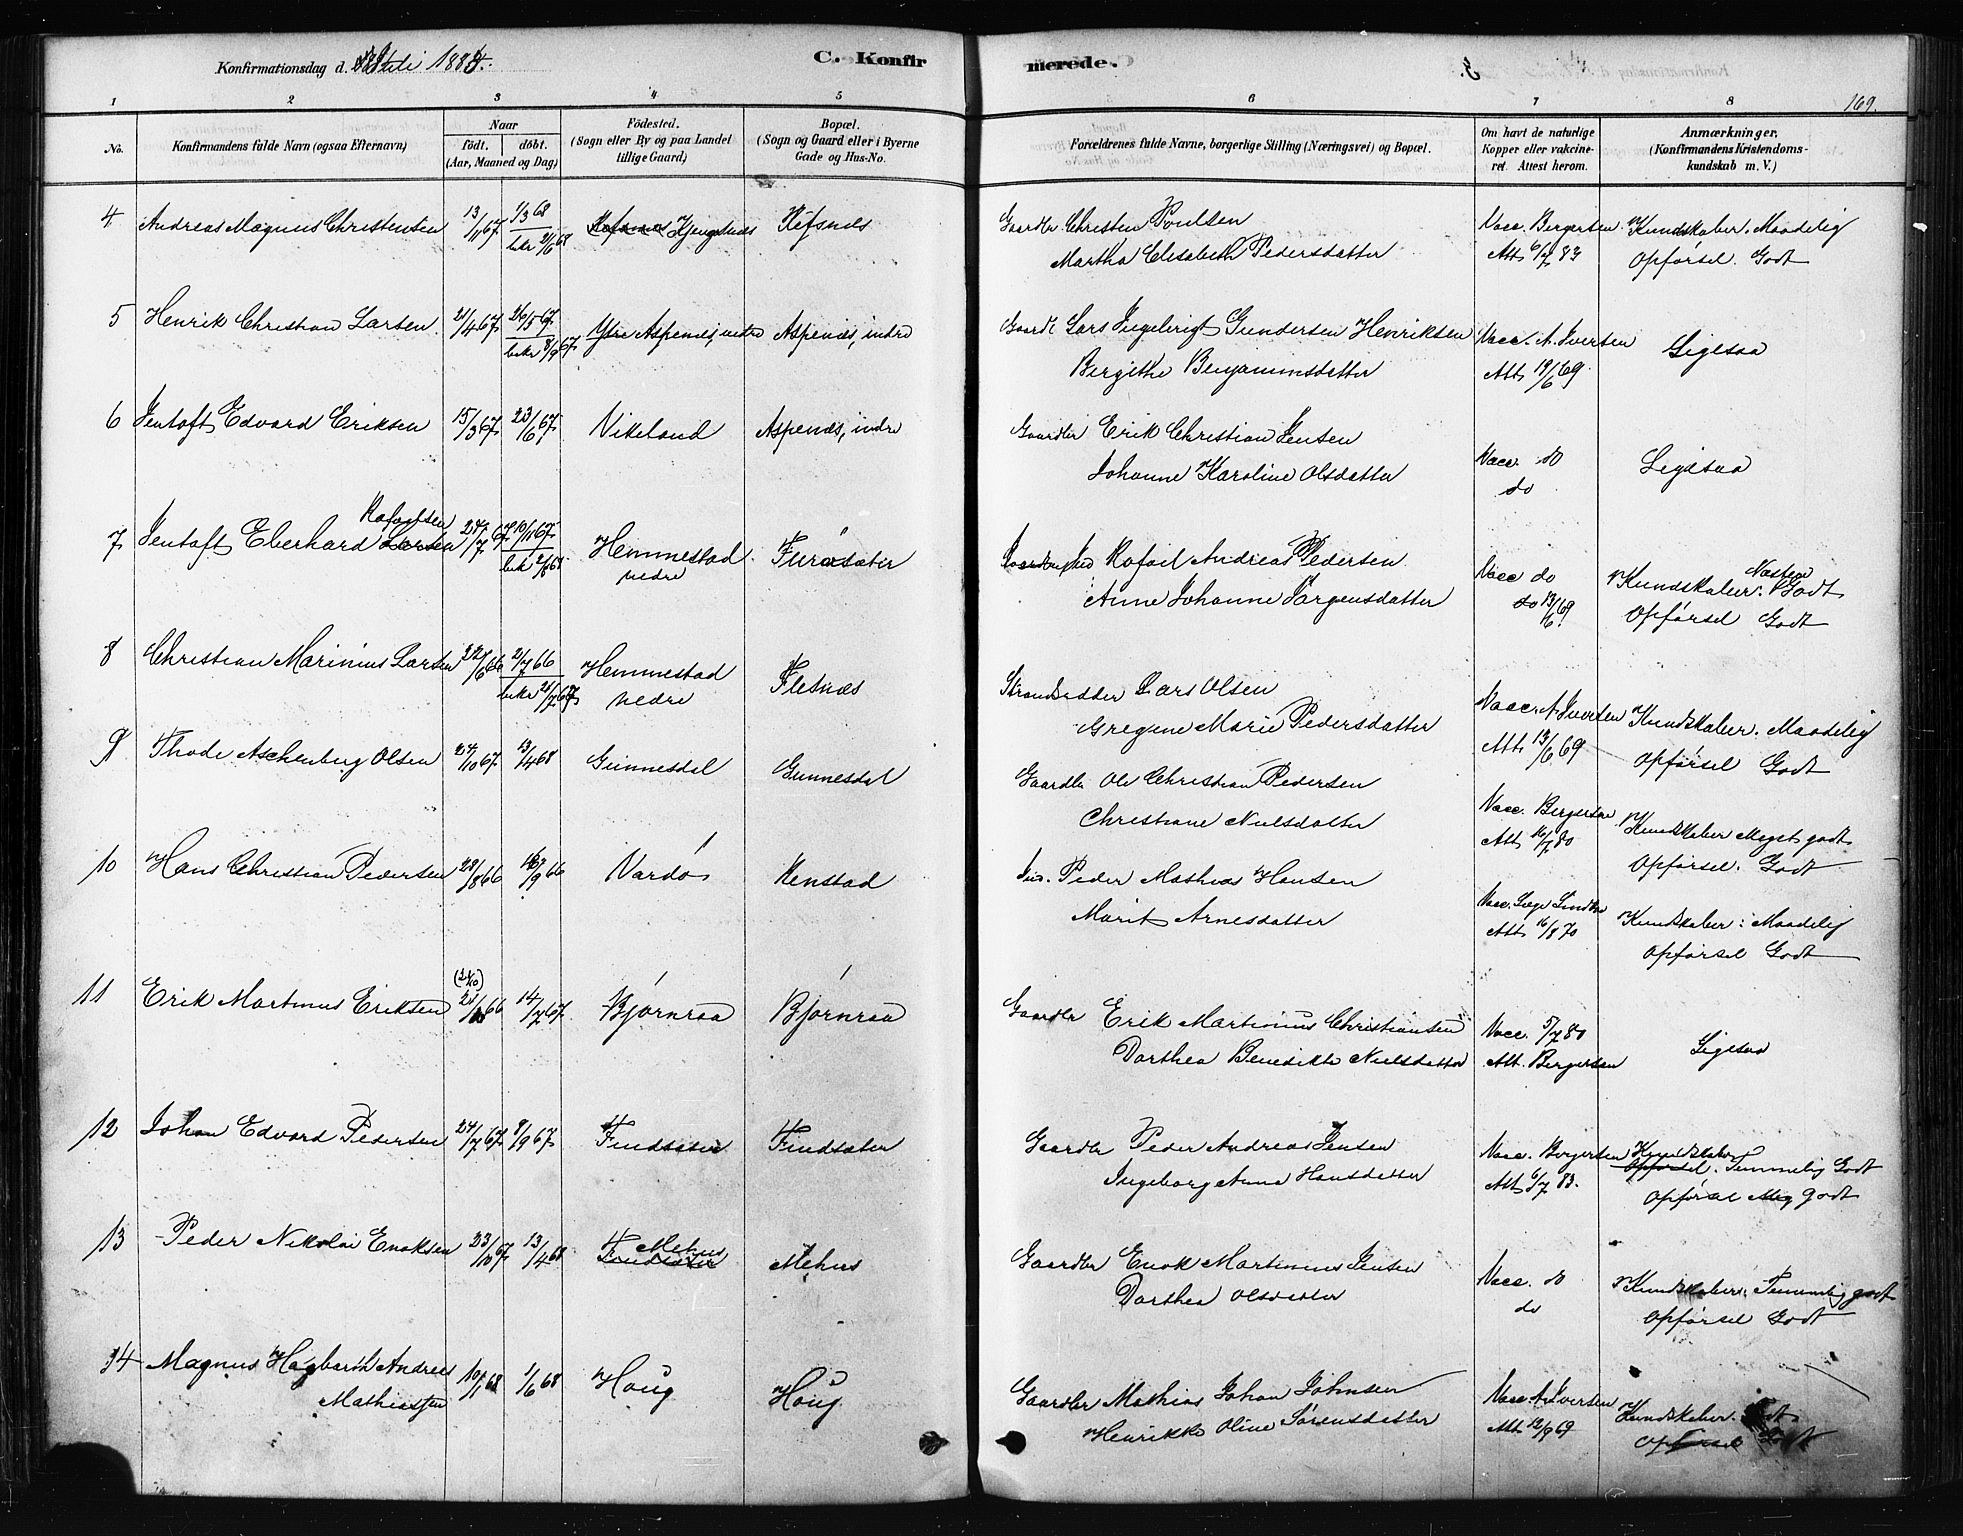 Konfirmationsdag d. Juli 1883.
C. Konfirmerede.
169.
1 2 3 4 5 6 7 8
No.
Konfirmandens fulde Navn (ogsaa Efternavn)
Naar
födt. döbt.
(Aar, Maaned og Dag)
Födested.
(Sogn eller By og paa Landet
tillige Gaard)
Bopæl.
(Sogn og Gaard eller i Byerne
Gade og Hus-No.
Forældrenes fulde Navne, borgerlige Stilling (Næringsvei) og Bopæl.
Om havt de naturlige
Kopper eller vakcine-
ret. Attest herom.
Anmærkninger.
(Konfirmandens Kristendoms-
kundskab m. V.)
4 Andreas Magnus Christensen 13/11 67 1/3 68 Kjengsnæs Refsnæs Gaardbr Christen Poulsen Vacc. Bergersen Kundskaber. Maadelig
bekr 2/6 68 Martha Elisabeth Pedersdatter Att 6/7 83 Opførsel. Godt
5 Henrik Christian Larsen. 21/4 67 26/5 67 Aspenæs, indre Aspenæs, indre Gaardb Lars Ingebrigt Gundersen Henriksen Vacc. A. Iversen Ligesaa
bekr 8/9 67 Bergithe Benjaminsdatter Att 19/6 69
6 Jentoft Edvard Eriksen 15/3 67 23/6 67 Vikeland Aspenæs, indre Gaardbr Erik Christian Jensen Vacc. do Ligesaa
Johanne Karoline Olsdatter do
7 Jentoft Eberhard Larsen Rafaelsen 24/7 67 10/11 67 Hemmestad Furøsæter Rafael Andreas Pedersen Vacc do Kundskaber. Næsten Godt
bek 2/6 68 nedre Anne Johanne Jørgensdatter do 13/6 69 Opførsel Godt
8 Christian Marinius Larsen 22/6 66 2/7 66 Hemmestad Flesnæs Strandsidder Lars Olsen Vacc. A. Iversen Kundskaber. Maadelig
bekr 21/7 67 nedre Gregine Marie Pedersdatter Att 13/6 69 Opførsel Godt
9 Thode Aschenberg Olsen 24/10 67 13/4 68 Gunnesdal Gunnesdal Gaardbr Ole Christian Pedersen Vacc. Bergersen Kundskaber Meget godt
Christiane Nielsdatter Att 16/7 80 Opførsel. Godt
10 Hans Christian Pedersen 28/8 66 9 66 Vardø Renstad Ind. Peder Mathias Hansen Vacc. Læge Kundskaber: Maadelig
Marit Arnesdatter Att 16/8 70 Opførsel Godt
11 Erik Martinus Eriksen 66 14/7 67 Bjørnraa Bjørnraa Gaardbr Erik Martinius Christiansen Vacc. 5/7 80 Ligesaa
Dorthea Benedikte Nielsdatter Att. Bergersen
12 Johan Edvard Pedersen 24/7 67 8/9 67 Findsæter Findsæter Gaardbr Peder Andreas Jensen Vacc. Bergersen Kundskaber Opførsel. Temmelig Godt
Ingeborg Anna Hansdatter Att 6/7 83. Opførsel Meg godt
13 Peder Nikolai Enoksen 23/10 67 13/4 68 Findsæter Mehus Mehus Gaardbr Enok Martinius Jensen Vacc. do Kundskaber. Temmelig godt
Dorthea Olsdatter do Opførsel Godt
14 Magnus Hagbarth Andreas 10/1 68 1/6 68 Houg Houg Gaardbr Mathias Johan Johnsen Vacc. A. Iversen Kundskaber. Godt
Mathiassen Henrikke Oline Sørensdatter Att 12/9 69 Opførsel Godt